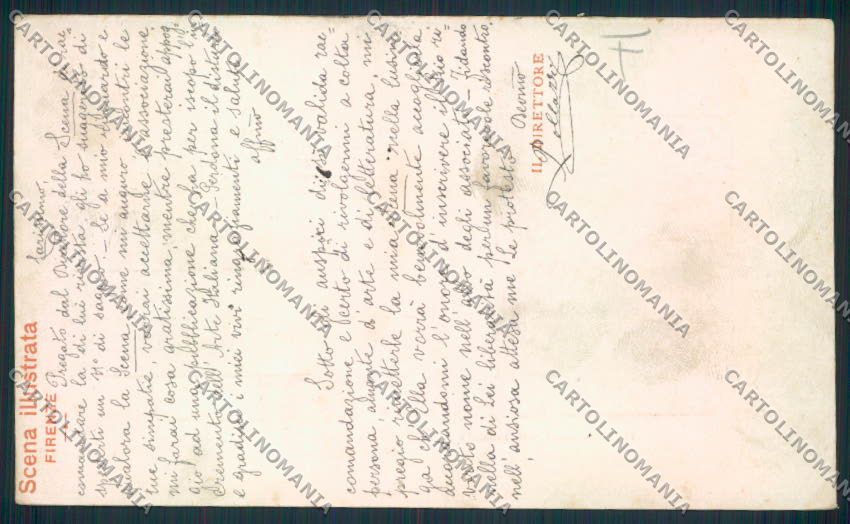 Scena illustrata
FIRENZE
Carissimo,
Pregato dal Direttore della Scena di rac
comandare la di lui rivista gli ho suggerito di
spedirti un N° di saggio. - Se a mio riguardo e
qualora la Scena, come mi auguro, incontri le
tue simpatie, vorrai accettarne l'associazione
mi farai cosa gratissima, mentre presterai appog
gio ad una pubblicazione che ha per iscopo l'in
cremento dell'Arte Italiana - Perdona il disturbo
e gradisci i miei vivi ringraziamenti e saluti
affmo
Sotto gli auspici di sì valida rac
comandazione e certo di rivolgermi a colta
persona, amante d'arte e di letteratura, mi
pregio rimetterle la mia Scena nella lusin
ga che Ella verrà benevolmente accoglierla
accordandomi l'onore d'inscrivere il di Lei ri
verito nome nell'albo degli associati. - Fidando
nella di Lei liberalità per un favorevole riscontro,
nell'ansiosa attesa me Le protesto
Devmo
IL DIRETTORE
Pollazzi
41
CARTOLINOMANIA